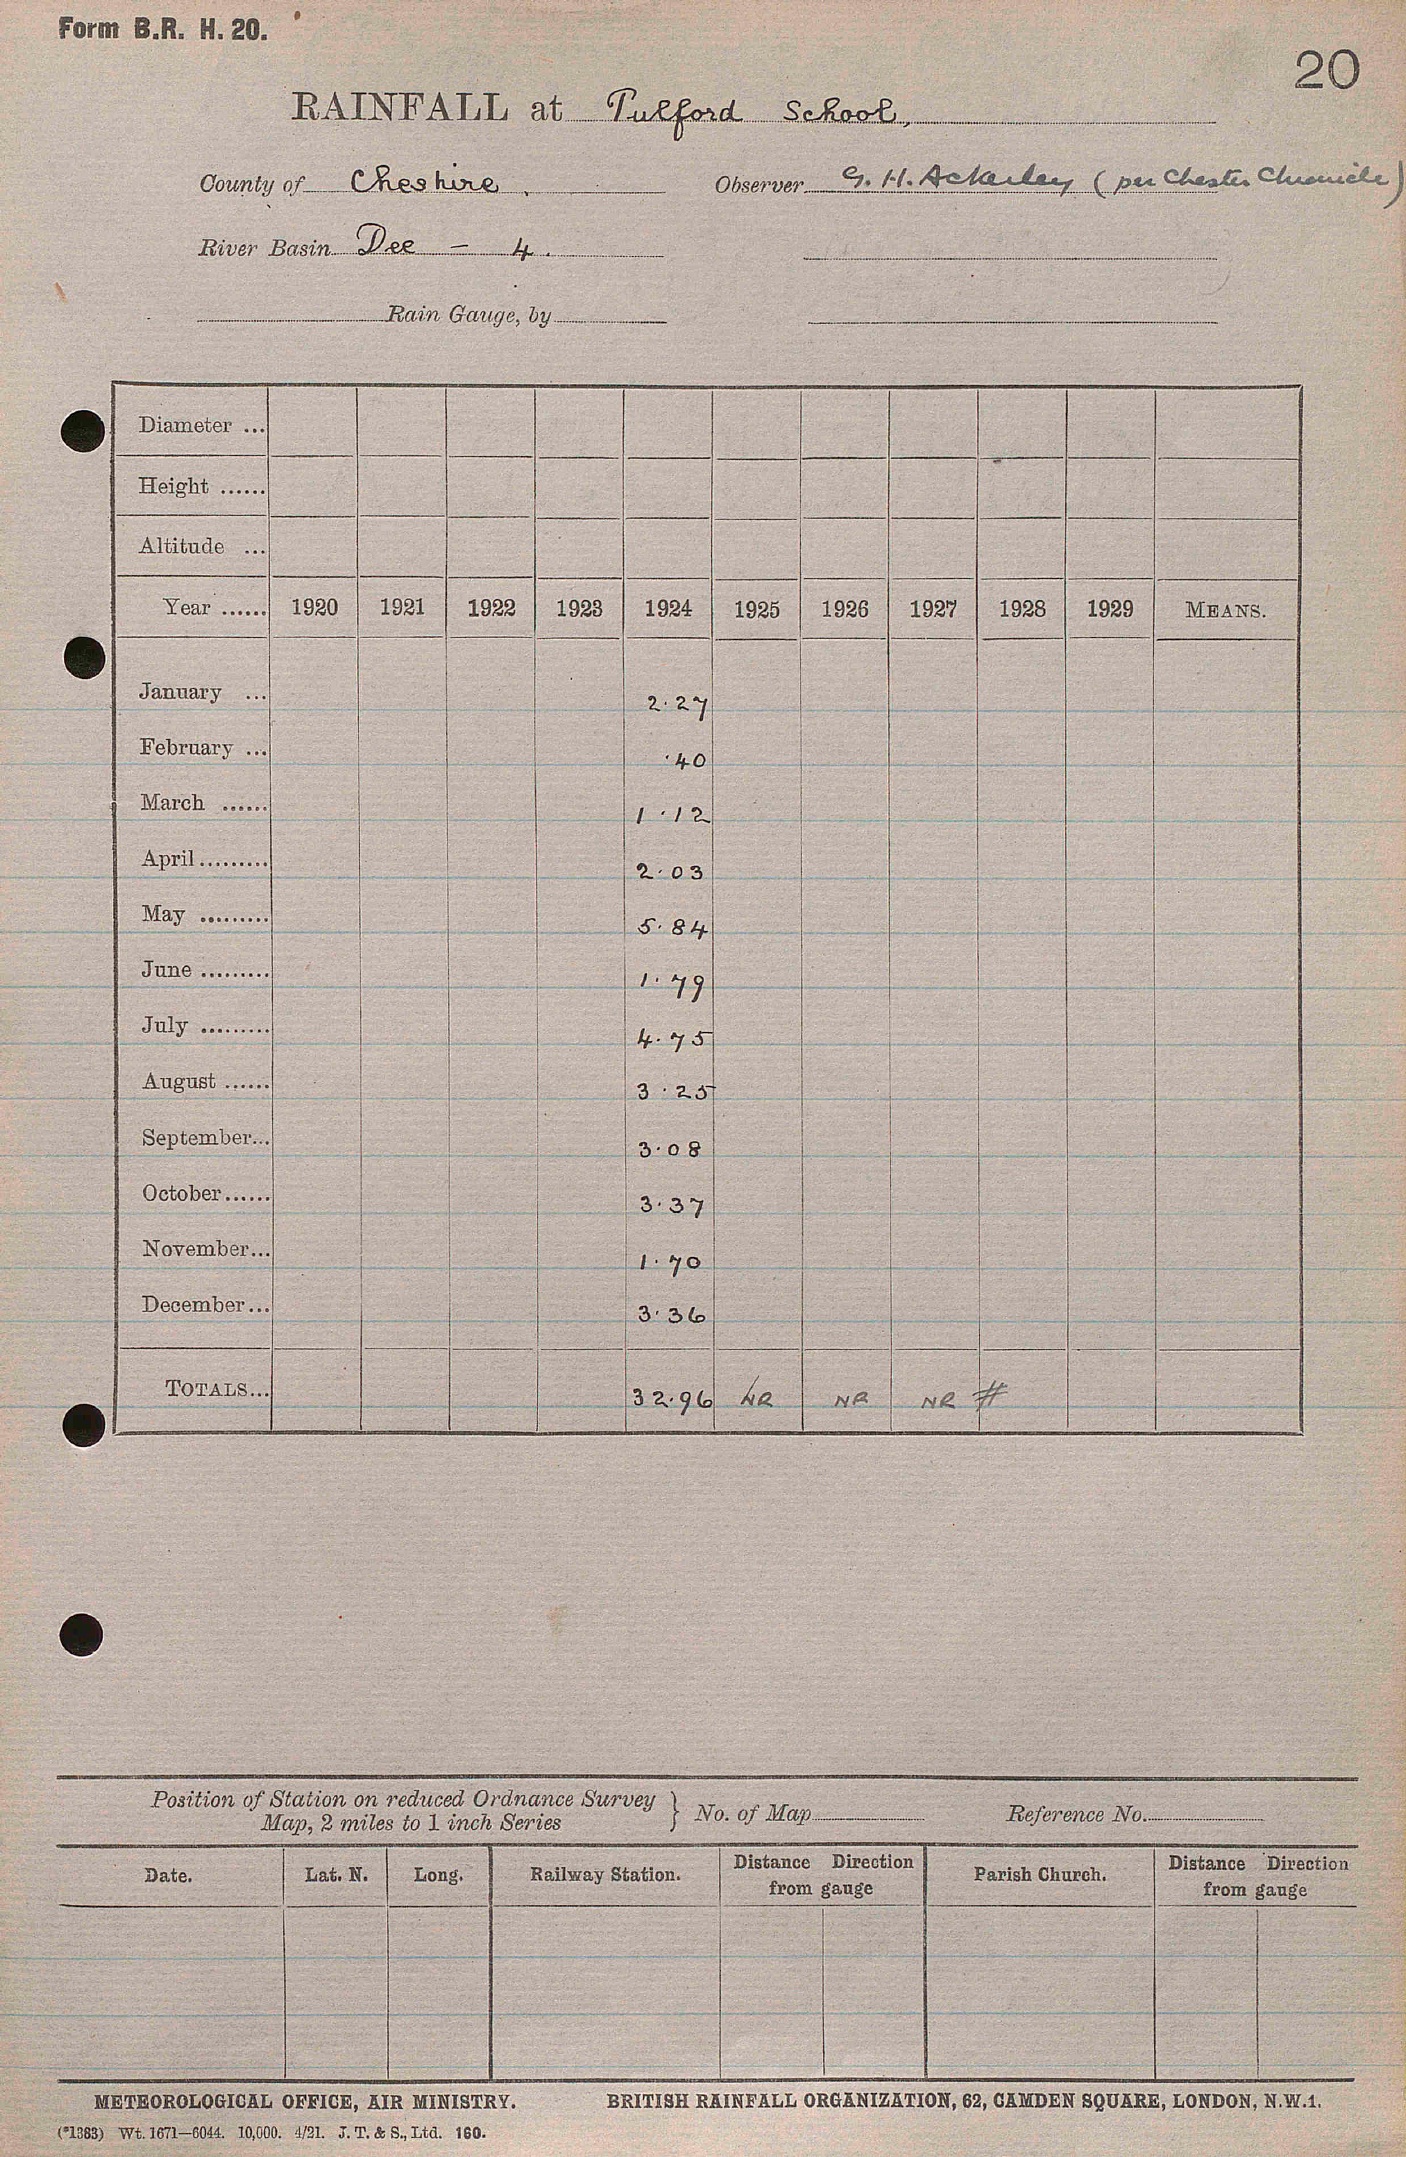 Form B.R. H. 20.
20
RAINFALL at Pulford School,
County of Cheshire. Observer G. H. Ackerley (per Chester Chronicle)
River Basin Dee - 4.
Rain Gauge, by
Diameter ...
Height ......
Altitude ...
Year ...... 1920 1921 1922 1923 1924 1925 1926 1927 1928 1929 MEANS.
January ... 2.27
February ... .40
March ...... 1.12
April ......... 2.03
May ......... 5.84
June ......... 1.79
July ......... 4.75
August ...... 3.25
September... 3.08
October...... 3.37
November... 1.70
December... 3.36
TOTALS... 32.96 NR NR NR #
Position of Station on reduced Ordnance Survey
Map, 2 miles to 1 inch Series } No. of Map Reference No.
Date. Lat. N. Long. Railway Station. Distance Direction from gauge Parish Church. Distance Direction from gauge
METEOROLOGICAL OFFICE, AIR MINISTRY. BRITISH RAINFALL ORGANIZATION, 62, CAMDEN SQUARE, LONDON, N.W.1.
(*1383) Wt. 1671—6044. 10,000. 4/21. J. T. & S., Ltd. 160.